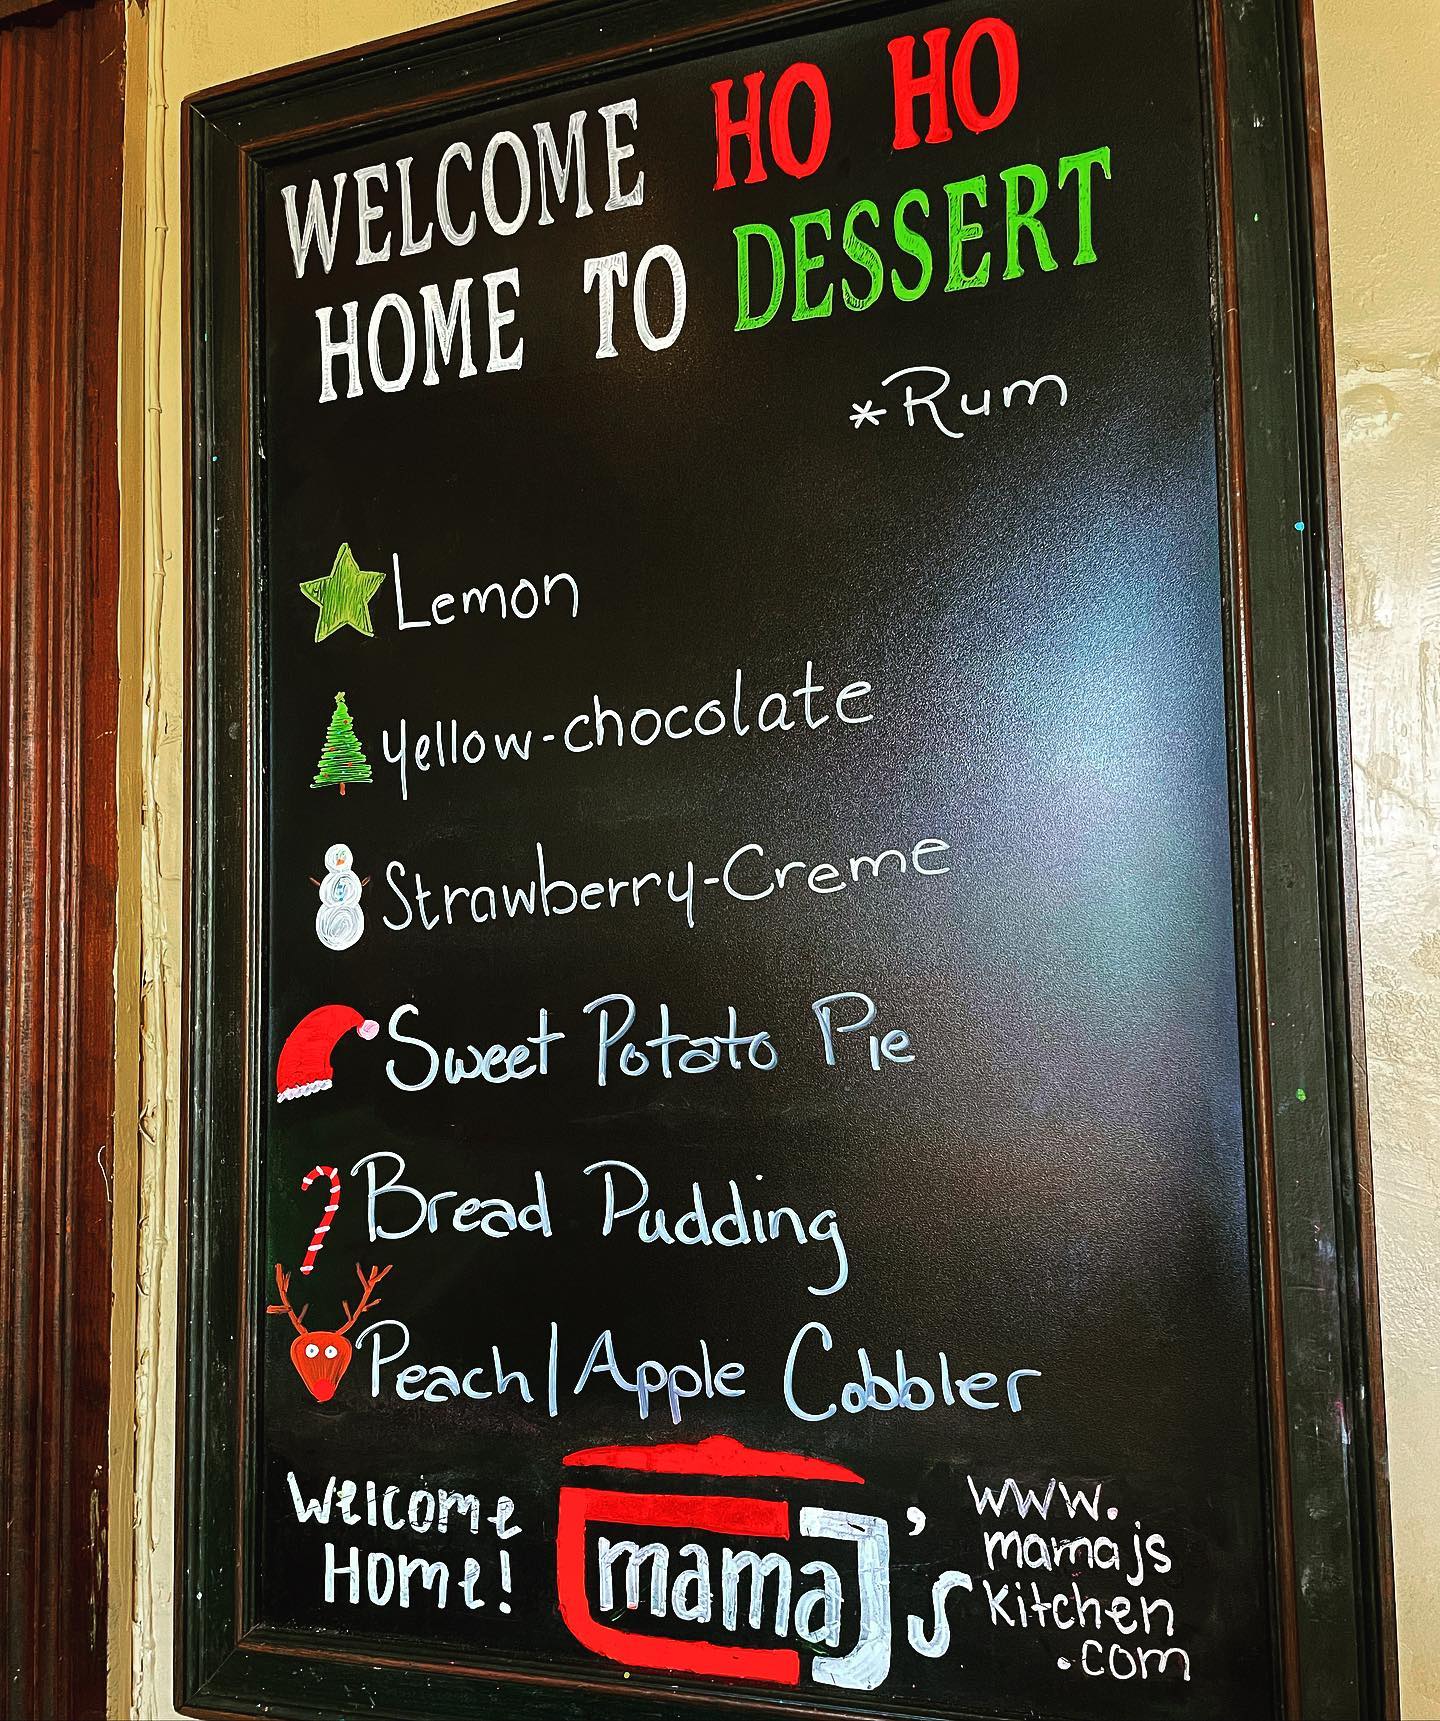 WELCOME HO HO
HOME TO DESSERT
*Rum
Lemon
Yellow-chocolate
Strawberry-Creme
Sweet Potato Pie
Bread Pudding
Peach/Apple Cobbler
Welcome
Home!
mamaJ's
www.
mamajs
kitchen
.com